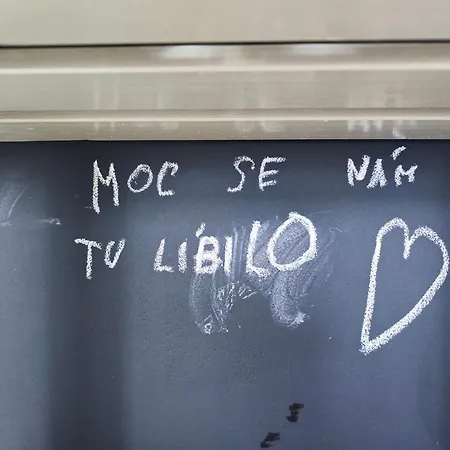 MOC SE NÁM
TU LÍBILO